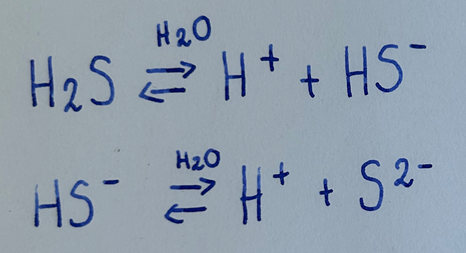 H₂S ⇌ H₂O H⁺ + HS⁻
HS⁻ ⇌ H₂O H⁺ + S²⁻